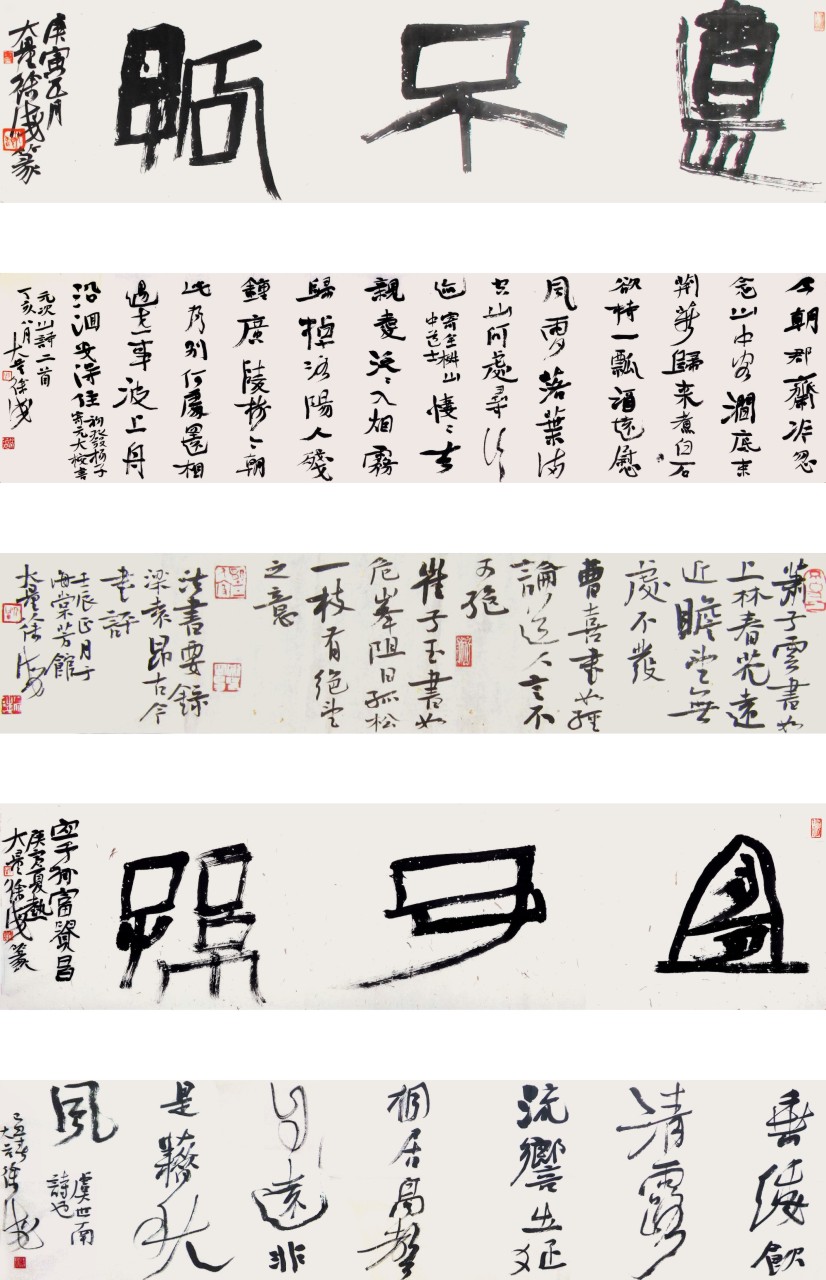 不
庚寅
今朝郡齋冷忽
念山中客澗底束
荊薪歸來煮白石
欲持一瓢酒遠慰
風雨夕落葉滿
空山何處尋行
迹
寄全椒山
中道士
悽悽去
親愛泛泛入烟霧
歸棹洛陽人殘
鐘廣陵樹今朝
此為別何處還相
遇世事波上舟
沿洄安得住
初發揚子
寄元大校書
元次山詩二首
丁亥八月大徐
蕭子雲書如
上林春花遠
近瞻望無
處不發
曹喜書如經
論道人言不
可絕
崔子玉書如
危峯阻日孤松
一枝有絕望
之意
法書要錄
梁袁昂古今
書評
壬辰正月于
海棠芳館
大徐
宜子孫
宜子孫富貴昌
庚寅夏熱
大徐篆
垂緌飲
清露
流響出疏
桐居高聲
自遠非
是藉秋
風
虞世南
詩也
己丑春
徐